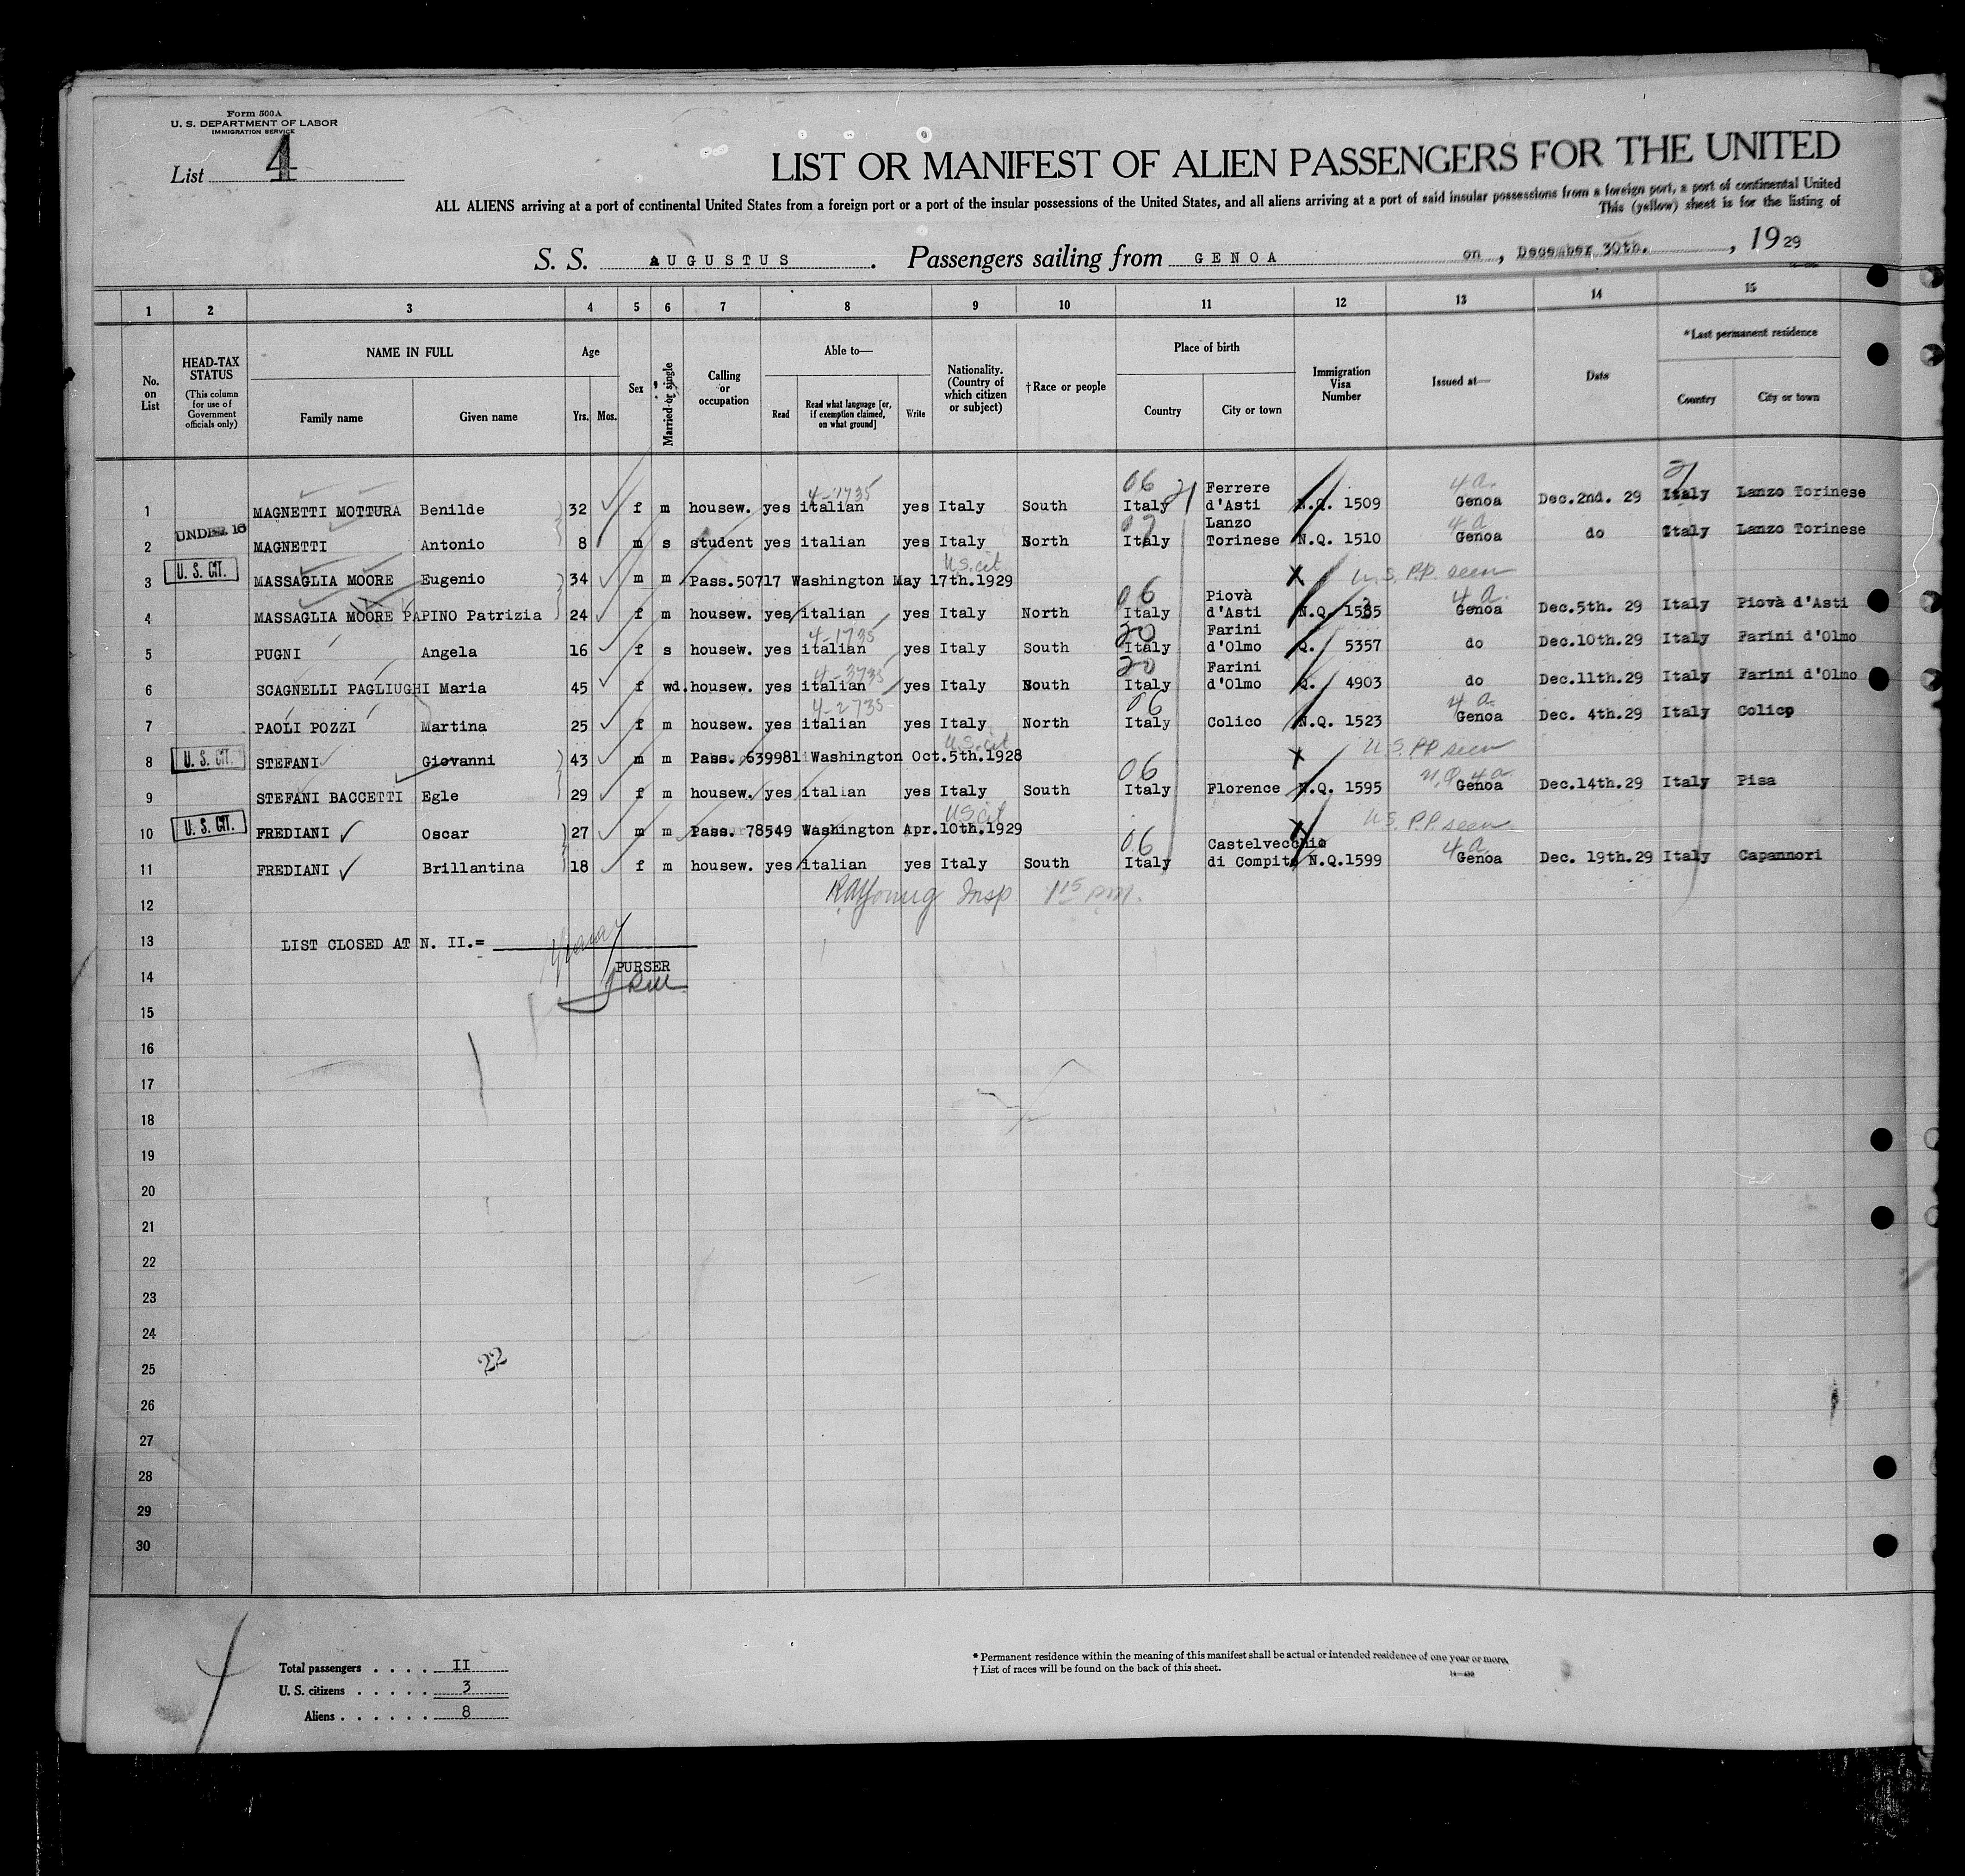 Form 500A
U. S. DEPARTMENT OF LABOR
IMMIGRATION SERVICE
List 4
LIST OR MANIFEST OF ALIEN PASSENGERS FOR THE UNITED
ALL ALIENS arriving at a port of continental United States from a foreign port or a port of the insular possessions of the United States, and all aliens arriving at a port of said insular possessions from a foreign port, a port of continental United
This (yellow) sheet is for the listing of
S. S. AUGUSTUS. Passengers sailing from GENOA on, December 30th., 1929
1 2 3 4 5 6 7 8 9 10 11 12 13 14 15
No. on List
HEAD-TAX STATUS
(This column for use of Government officials only)
NAME IN FULL
Family name Given name
Age
Yrs. Mos.
Sex
Married or single
Calling or occupation
Able to—
Read
Read what language [or, if exemption claimed, on what ground]
Write
Nationality. (Country of which citizen or subject)
†Race or people
Place of birth
Country City or town
Immigration Visa Number
Issued at—
Date
*Last permanent residence
Country City or town
4-1735 06 21 4a. 21
1 MAGNETTI MOTTURA Benilde 32 f m housew. yes italian yes Italy South Italy Ferrere d'Asti N.Q. 1509 Genoa Dec.2nd. 29 Italy Lanzo Torinese
UNDER 16 07 4a
2 MAGNETTI Antonio 8 m s student yes italian yes Italy North Italy Lanzo Torinese N.Q. 1510 Genoa do Italy Lanzo Torinese
U. S. CIT. U.S. cit
3 MASSAGLIA MOORE Eugenio 34 m m Pass.50717 Washington May 17th.1929 X U.S. P.P. seen
06 4a.
4 MASSAGLIA MOORE PAPINO Patrizia 24 f m housew. yes italian yes Italy North Italy Piovà d'Asti N.Q. 1535 Genoa Dec.5th. 29 Italy Piovà d'Asti
4-1735 20
5 PUGNI Angela 16 f s housew. yes italian yes Italy South Italy Farini d'Olmo Q. 5357 do Dec.10th.29 Italy Farini d'Olmo
4-3735 20
6 SCAGNELLI PAGLIUGHI Maria 45 f wd. housew. yes italian yes Italy South Italy Farini d'Olmo Q. 4903 do Dec.11th.29 Italy Farini d'Olmo
4-2735 06 4a.
7 PAOLI POZZI Martina 25 f m housew. yes italian yes Italy North Italy Colico N.Q. 1523 Genoa Dec. 4th.29 Italy Colico
U. S. CIT. U.S. cit
8 STEFANI Giovanni 43 m m Pass. 639981 Washington Oct.5th.1928 X U.S. P.P. seen
06 4a.
9 STEFANI BACCETTI Egle 29 f m housew. yes italian yes Italy South Italy Florence N.Q. 1595 Genoa Dec.14th.29 Italy Pisa
U. S. CIT. U.S. cit
10 FREDIANI Oscar 27 m m Pass. 78549 Washington Apr.10th.1929 X U.S. P.P. seen
06 4a.
11 FREDIANI Brillantina 18 f m housew. yes italian yes Italy South Italy Castelvecchio di Compito N.Q.1599 Genoa Dec. 19th.29 Italy Capannori
12 Insp. 1 15 PM.
13 LIST CLOSED AT N. II.=
PURSER
14
15
16
17
18
19
20
21
22
23
24
25 22
26
27
28
29
30
Total passengers . . . . II
U. S. citizens . . . . . 3
Aliens . . . . . . 8
* Permanent residence within the meaning of this manifest shall be actual or intended residence of one year or more.
† List of races will be found on the back of this sheet.